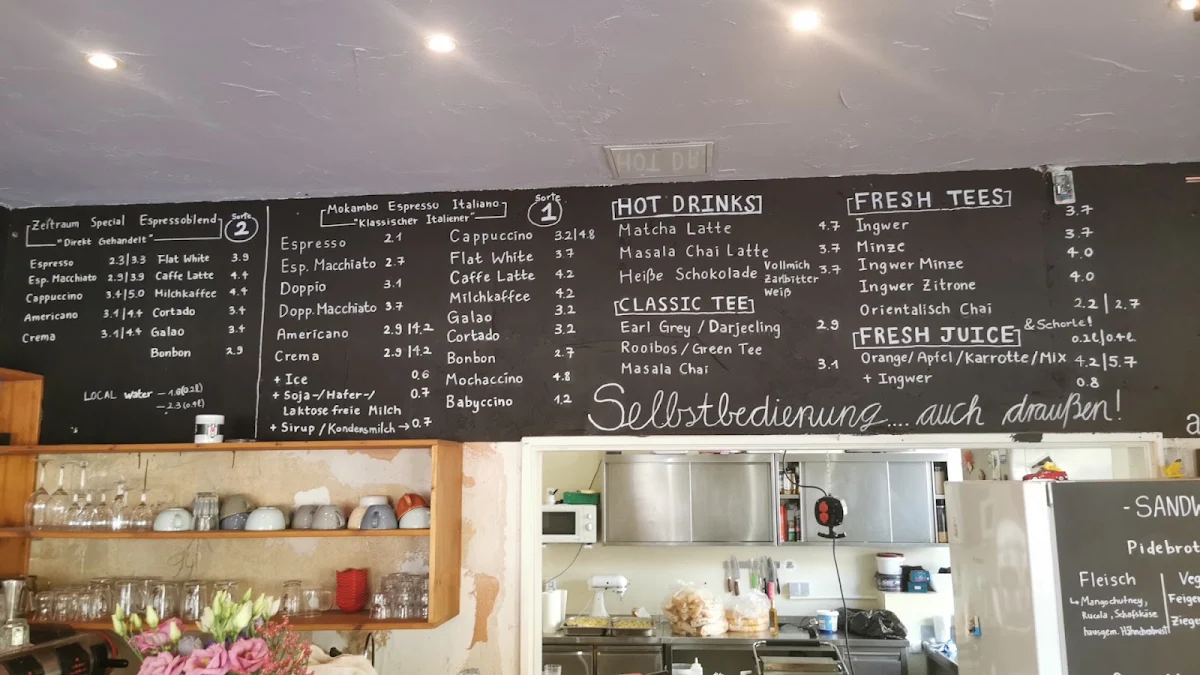 Zeitraum Special Espressoblend
"Direkt Gehandelt"
Sorte 2
Espresso 2.3|3.3
Esp. Macchiato 2.9|3.9
Cappuccino 3.4|5.0
Americano 3.1|4.4
Crema 3.1|4.4
Flat White 3.9
Caffe Latte 4.4
Milchkaffee 4.4
Cortado 3.4
Galao 3.4
Bonbon 2.9
LOCAL water – 1.8(0.2l)
– 2.3(0.4l)
Mokambo Espresso Italiano
"Klassischer Italiener"
Sorte 1
Espresso 2.1
Esp. Macchiato 2.7
Doppio 3.1
Dopp. Macchiato 3.7
Americano 2.9|4.2
Crema 2.9|4.2
+ Ice 0.6
+ Soja-/Hafer-/ 0.7
Laktosefreie Milch
+ Sirup/Kondensmilch → 0.7
Cappuccino 3.2|4.8
Flat White 3.7
Caffe Latte 4.2
Milchkaffee 4.2
Galao 3.2
Cortado 3.2
Bonbon 2.7
Mochaccino 4.8
Babyccino 1.2
HOT DRINKS
Matcha Latte 4.7
Masala Chai Latte 3.7
Heiße Schokolade Vollmich 3.7
Zartbitter
Weiß
CLASSIC TEE
Earl Grey / Darjeeling 2.9
Rooibos / Green Tee
Masala Chai 3.1
FRESH TEES
Ingwer 3.7
Minze 3.7
Ingwer Minze 4.0
Ingwer Zitrone 4.0
Orientalisch Chai 2.2|2.7
FRESH JUICE & Schorle!
0.2l|0.4l
Orange/Apfel/Karrotte/Mix 4.2|5.7
+ Ingwer 0.8
Selbstbedienung.... auch draußen!
a
HOT DR
- SANDW
Pidebrot
Fleisch
↳ Mangochutney,
Rucola, Schafskäse
hausgem. Hähnchenbrust
Veg
Feigen
Ziege